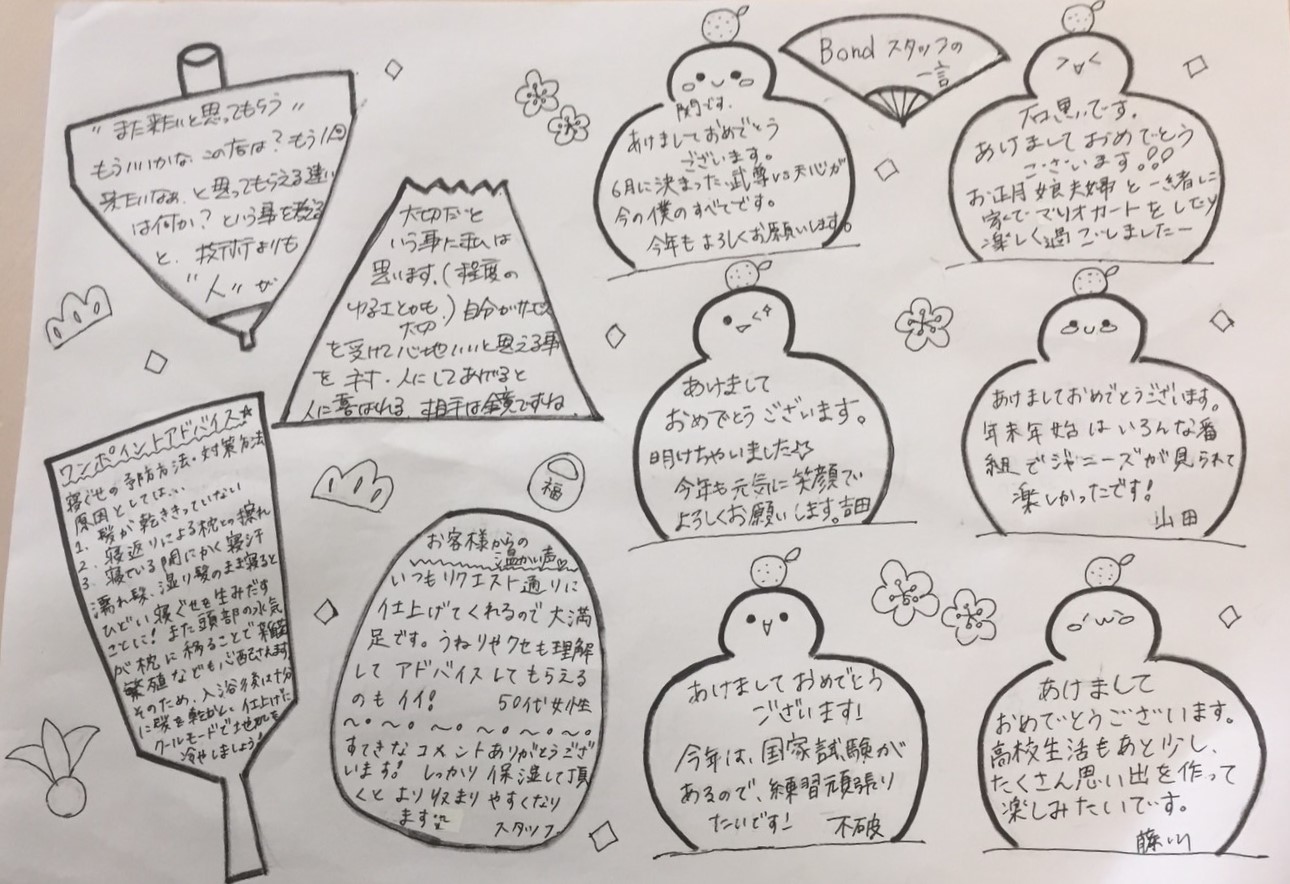 "また来たいと思ってもらう"
もういいかな この店は？もう1回
来たいなぁ、と思ってもらえる違い
は何か？という事を考える
と、技術よりも
"人"が
大切だと
いう事に私は
思います。(程度の
ゆるさとかも) 自分がサービス
大切
を受けて心地いいと思える事
を 人にしてあげると
人に喜ばれる 相手は鏡ですね
ワンポイントアドバイス☆
寝ぐせの予防方法・対策方法
原因としては…
1. 髪が乾ききっていない
2. 寝返りによる枕との擦れ
3. 寝ている間にかく寝汗
濡れ髪、湿り髪のまま寝ると
ひどい寝ぐせを生みだす
ことに！また頭部の水気
が枕に移ることで雑菌
繁殖なども心配されます
そのため、入浴後は十分
に髪を乾かし、仕上げに
クールモードで地肌を
冷やしましょう！
福
お客様からの
温かい声♡
いつもリクエスト通りに
仕上げてくれるので大満
足です。うねりやクセも理解
して アドバイスしてもらえる
のもイイ！ 50代女性
すてきなコメントありがとうござ
います！ しっかり保湿して頂
くと より収まりやすくなり
ます
スタッフ
Bond スタッフの
一言
関です。
あけましておめでとう
ございます。
6月に決まった、武尊vs天心が
今の僕のすべてです。
今年もよろしくお願いします。
石黒です。
あけまして おめでとう
ございます!!!
お正月娘夫婦と一緒に
家でマリオカートをしたり
楽しく過ごしましたー
あけまして
おめでとうございます。
明けちゃいました
今年も元気に笑顔で
よろしくお願いします。吉田
あけましておめでとうございます。
年末年始はいろんな番
組でジャニーズが見られて
楽しかったです！
山田
あけましておめでとう
ございます！
今年は、国家試験が
あるので、練習頑張り
たいです！ 不破
あけまして
おめでとうございます。
高校生活もあと少し、
たくさん思い出を作って
楽しみたいです。
藤川